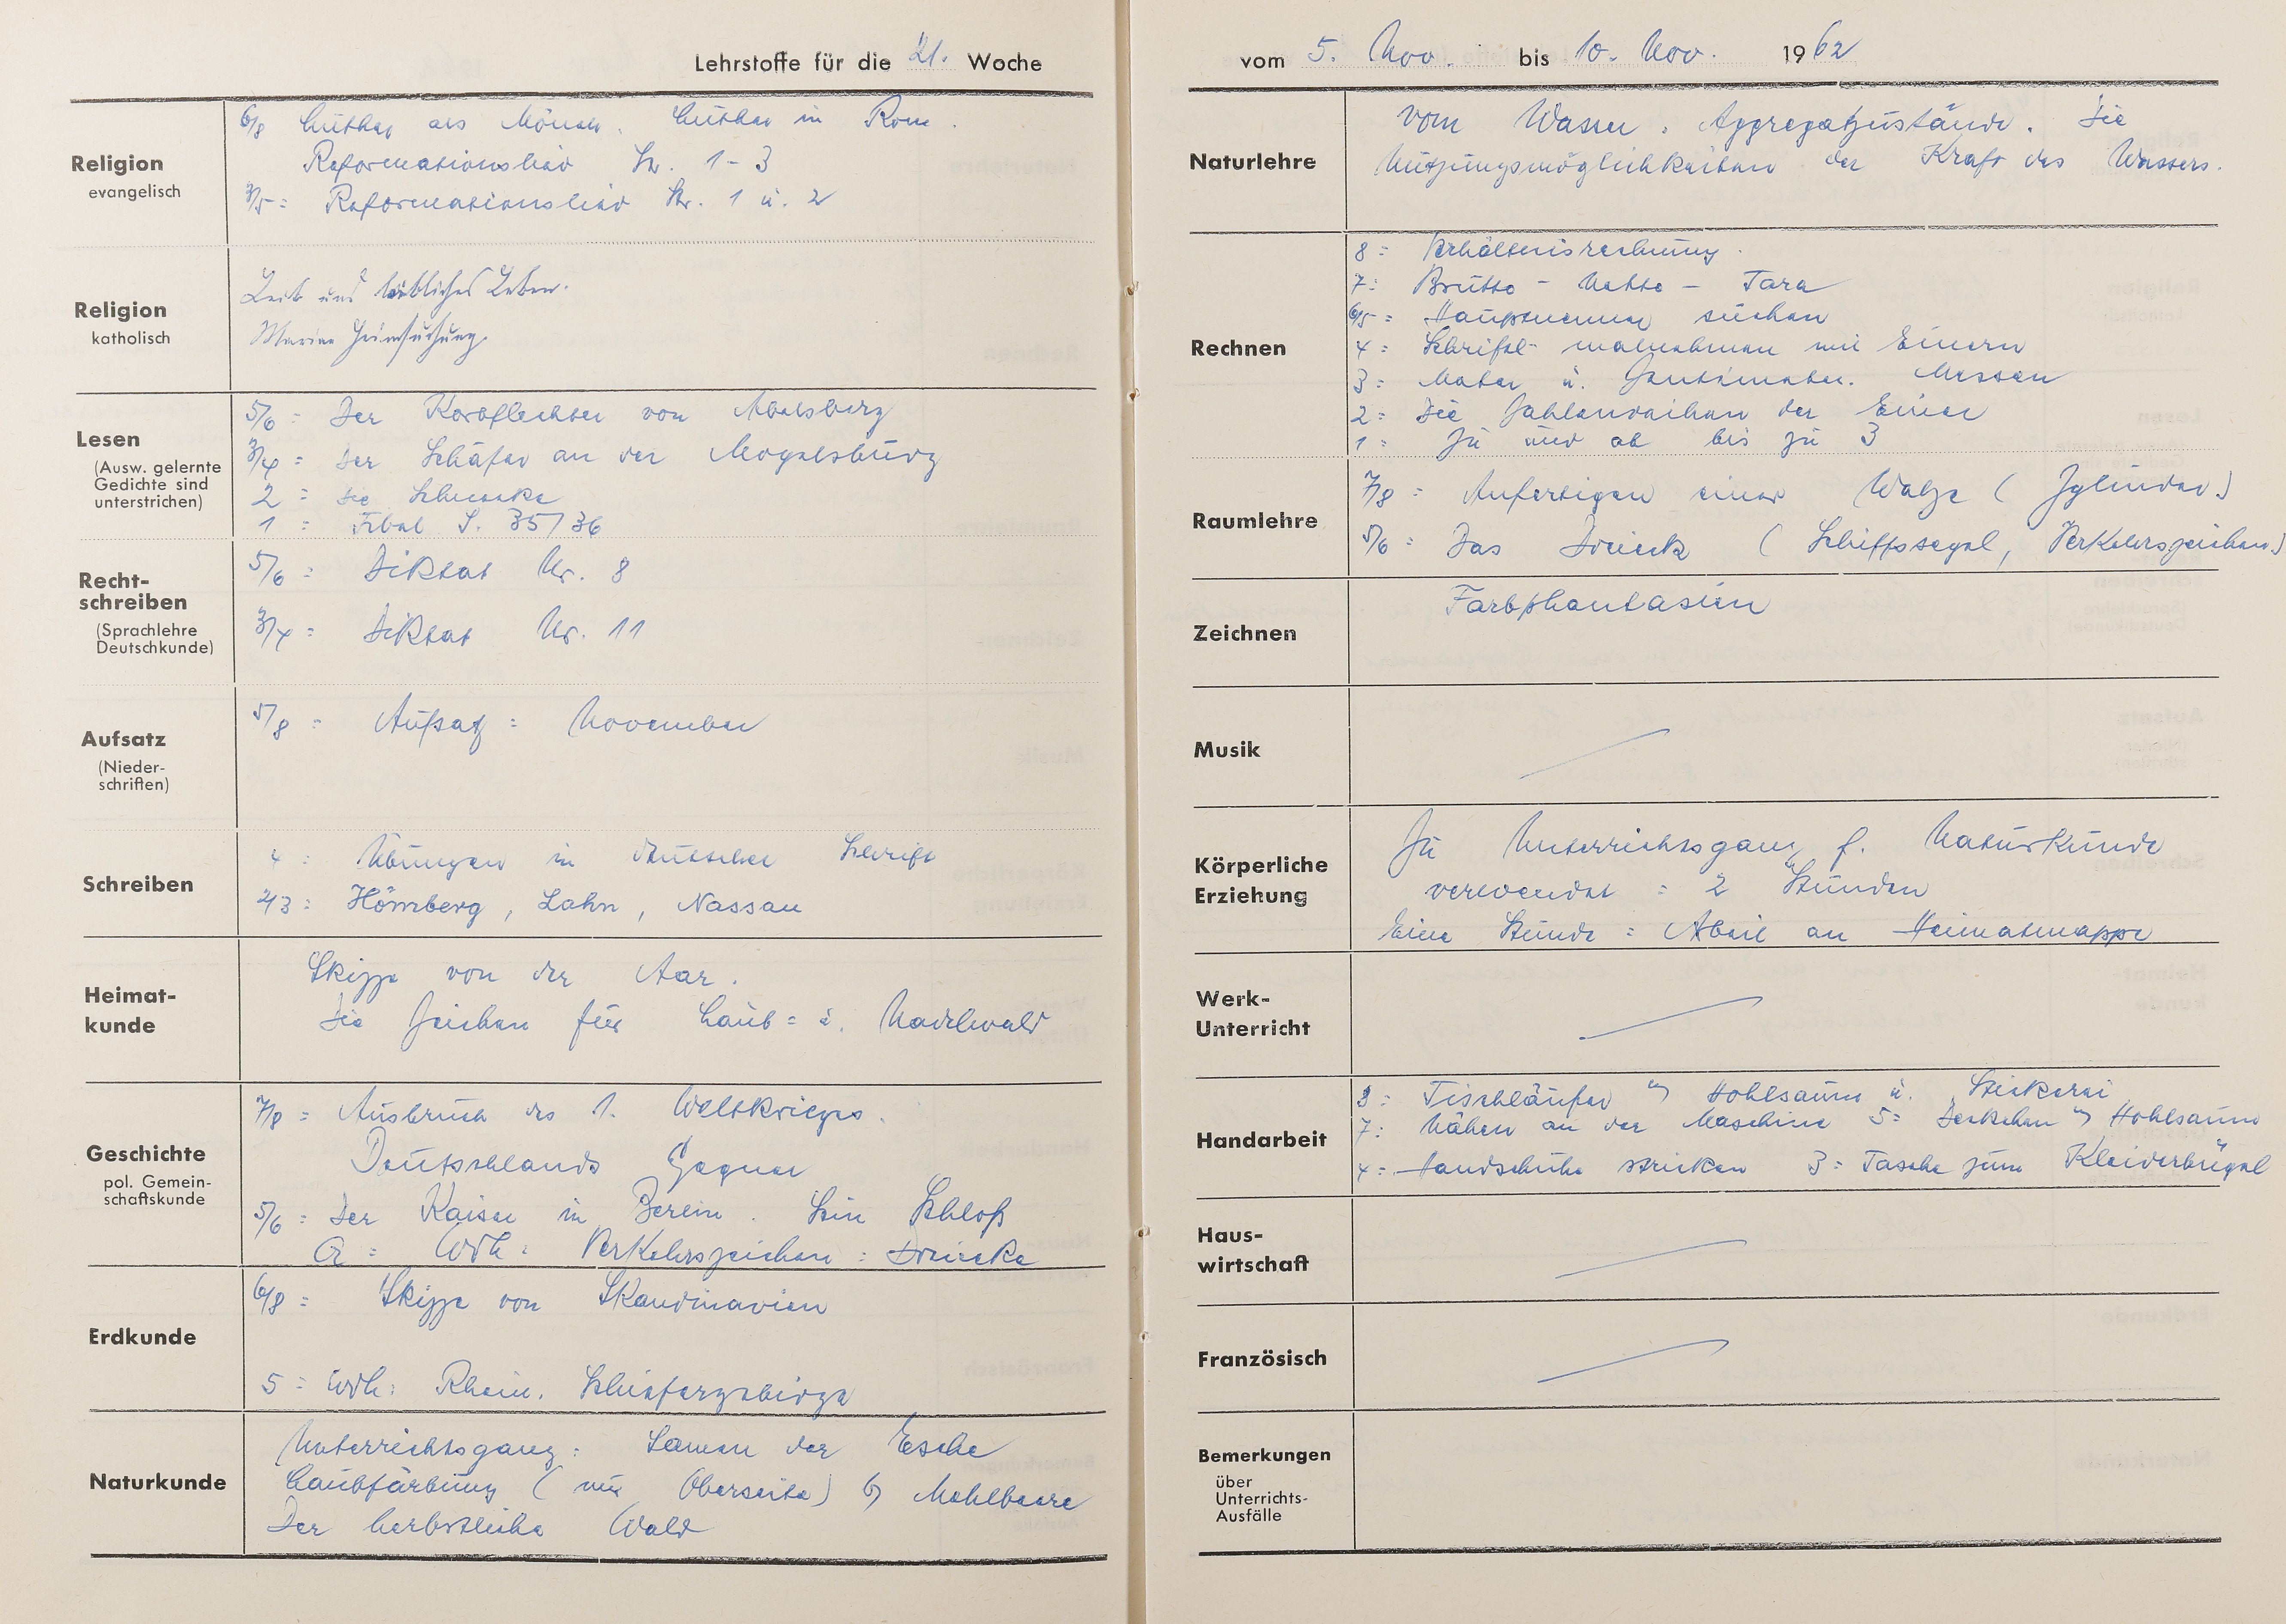 Lehrstoffe für die 21. Woche
Religion
evangelisch
6/8 Luther als Mönch. Luther in Rom.
Reformationslied Str. 1-3
3/5 = Reformationslied Str. 1 u. 2
Religion
katholisch
Leib und leibliches Leben.
Mariae Heimsuchung.
Lesen
(Ausw. gelernte
Gedichte sind
unterstrichen)
5/6 = Der Korbflechter von
3/4 = Der Schäfer an der
2 = Die Schnecke
1 = Fibel S. 35/36
Recht-
schreiben
(Sprachlehre
Deutschkunde)
5/6 = Diktat Nr. 8
3/4 = Diktat Nr. 11
Aufsatz
(Nieder-
schriften)
5/8 = Aufsatz = November
Schreiben
4 = Übungen in deutscher Schrift
2/3 = Hömberg, Lahn, Nassau
Heimat-
kunde
Skizze von der Aar.
Die Zeichen für Laub= u. Nadelwald
Geschichte
pol. Gemein-
schaftskunde
7/8 = Ausbruch des 1. Weltkrieges.
Deutschlands Gegner
5/6 = Der Kaiser in Berlin. Sein Schloß
G = Wdh: Verkehrszeichen = Dreiecke
Erdkunde
6/8 = Skizze von Skandinavien
5 = Wdh: Rhein. Schiefergebirge
Naturkunde
Unterrichtsgang: Samen der Esche
Laubfärbung (nur Oberseite) b) Mehlbeere
Der herbstliche Wald
vom 5. Nov. bis 10. Nov. 1962
Naturlehre
Vom Wasser. Aggregatzustände. Die
Nutzungsmöglichkeiten der Kraft des Wassers.
Rechnen
8 = Verhältnisrechnung.
7: Brutto - Netto - Tara
6/5 = Hauptnenner suchen
4 = Schriftl. malnehmen mit Einern
3 = Meter u. Zentimeter. Messen
2 = Die Zahlenreihen der Einer
1 = Zu und ab bis zu 3
Raumlehre
7/8 = Anfertigen einer Walze (Zylinder)
5/6 = Das Dreieck (Schiffssegel, Verkehrszeichen)
Zeichnen
Farbphantasien
Musik
Körperliche
Erziehung
Zu Unterrichtsgang f. Naturkunde
verwendet = 2 Stunden
Eine Stunde = Arbeit an Heimatmappe
Werk-
Unterricht
Handarbeit
8 = Tischläufer m Hohlsaum u. Stickerei
7: Nähen an der Maschine 5 = Deckchen m Hohlsaum
4 = Handschuhe stricken 3 = Tasche zum Kleiderbügel
Haus-
wirtschaft
Französisch
Bemerkungen
über
Unterrichts-
Ausfälle